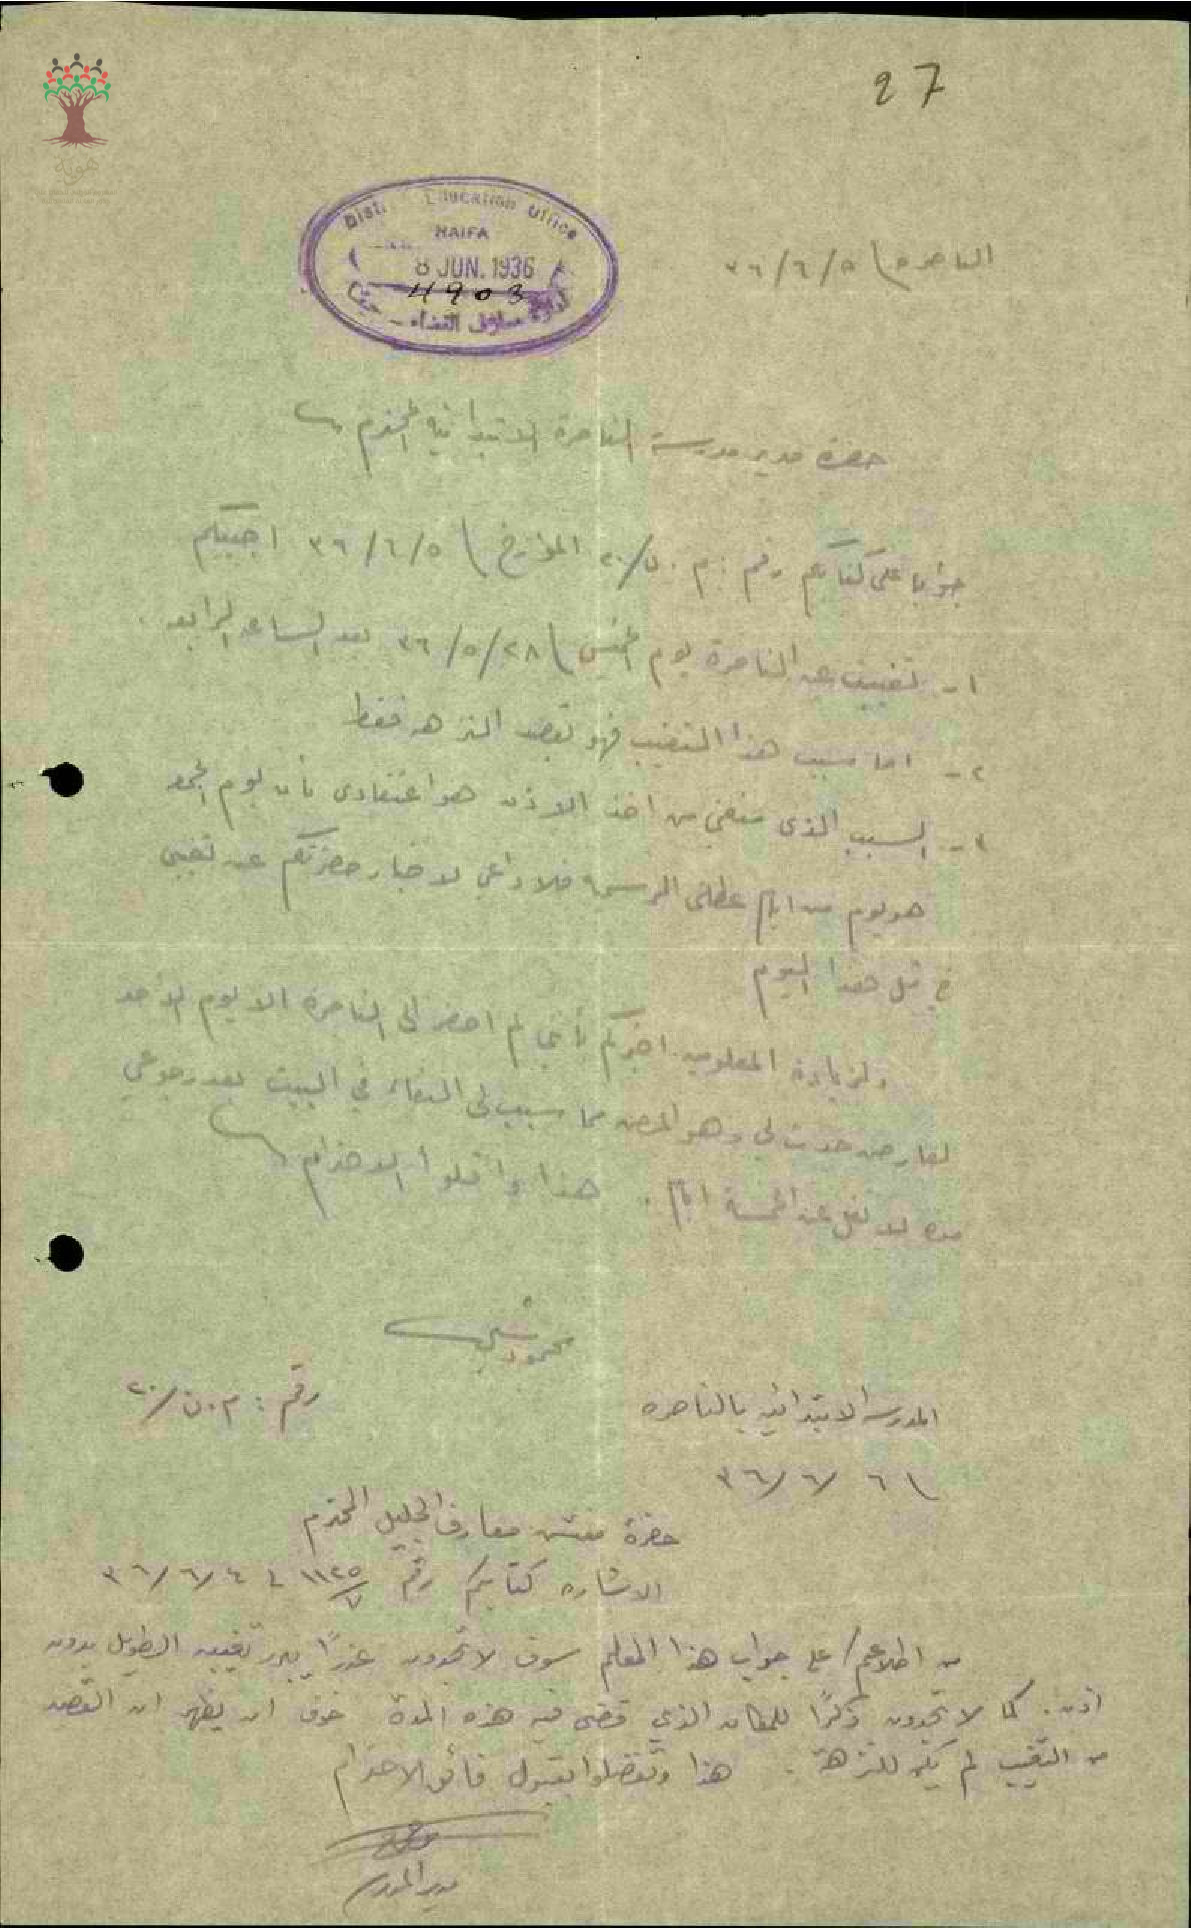 27
هوية
Dist. Education Office
HAIFA
8 JUN. 1936
4903
ادارة معارف القضاء - حيفا
الناصره ٥/٦/٣٦
حضرة مدير مدرسة الناصرة الابتدائية المحترم
جوابا على كتابكم رقم : م . ن/٢٠ المؤرخ ٥/٦/٣٦ اجيبكم
١- تغيبت عن الناصرة يوم الخميس ٢٨/٥/٣٦ بعد الساعه الرابعه .
٢- اما سبب هذا التغيب فهو بقصد النزهه فقط
٣- السبب الذى منعني من اخذ الاذن هو اعتقادى بأن يوم الجمعه
هو يوم من ايام عطلتى الرسميه فلا داعي لاخبار حضرتكم عن تغيبى
في مثل هذا اليوم
ولزيادة المعلوميه اخبركم بأني لم احضر الى الناصرة الا يوم الأحد
لعارض حدث لي وهو المرض مما سبب لى البقاء في البيت بعد رجوعي
مده لا تقل عن الخمسة ايام . هذا واقبلوا الاحترام
محمود
رقم : م . ن/٢٠
المدرسه الابتدائيه بالناصره
٦/٦/٣٦
حضرة مفتش معارف الجليل المحترم
الاشاره كتابكم رقم ١١٢٥/٧ ٤/٦/٣٦
من اطلاعكم على جواب هذا المعلم سوف لا تجدون عذرًا يبرر تغيبه الطويل بدون
اذن . كما لا تجدون ذكرًا للمكان الذي قضى فيه هذه المدة خوف ان يظهر ان القصد
من التغيب لم يكن للنزهة . هذا وتفضلوا بقبول فائق الاحترام
مدير المدرسه